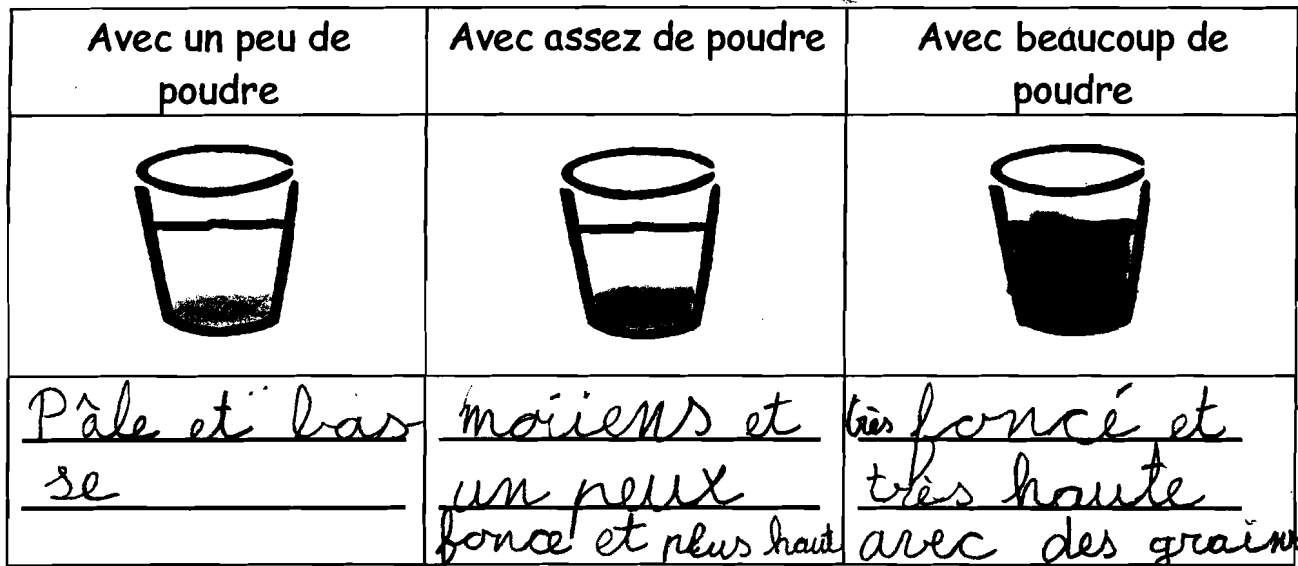 Avec un peu de
poudre
Avec assez de poudre
Avec beaucoup de
poudre
Pâle et bas
se
moiiens et
un peux
foncé et plus haut
très foncé et
très haute
avec des grains